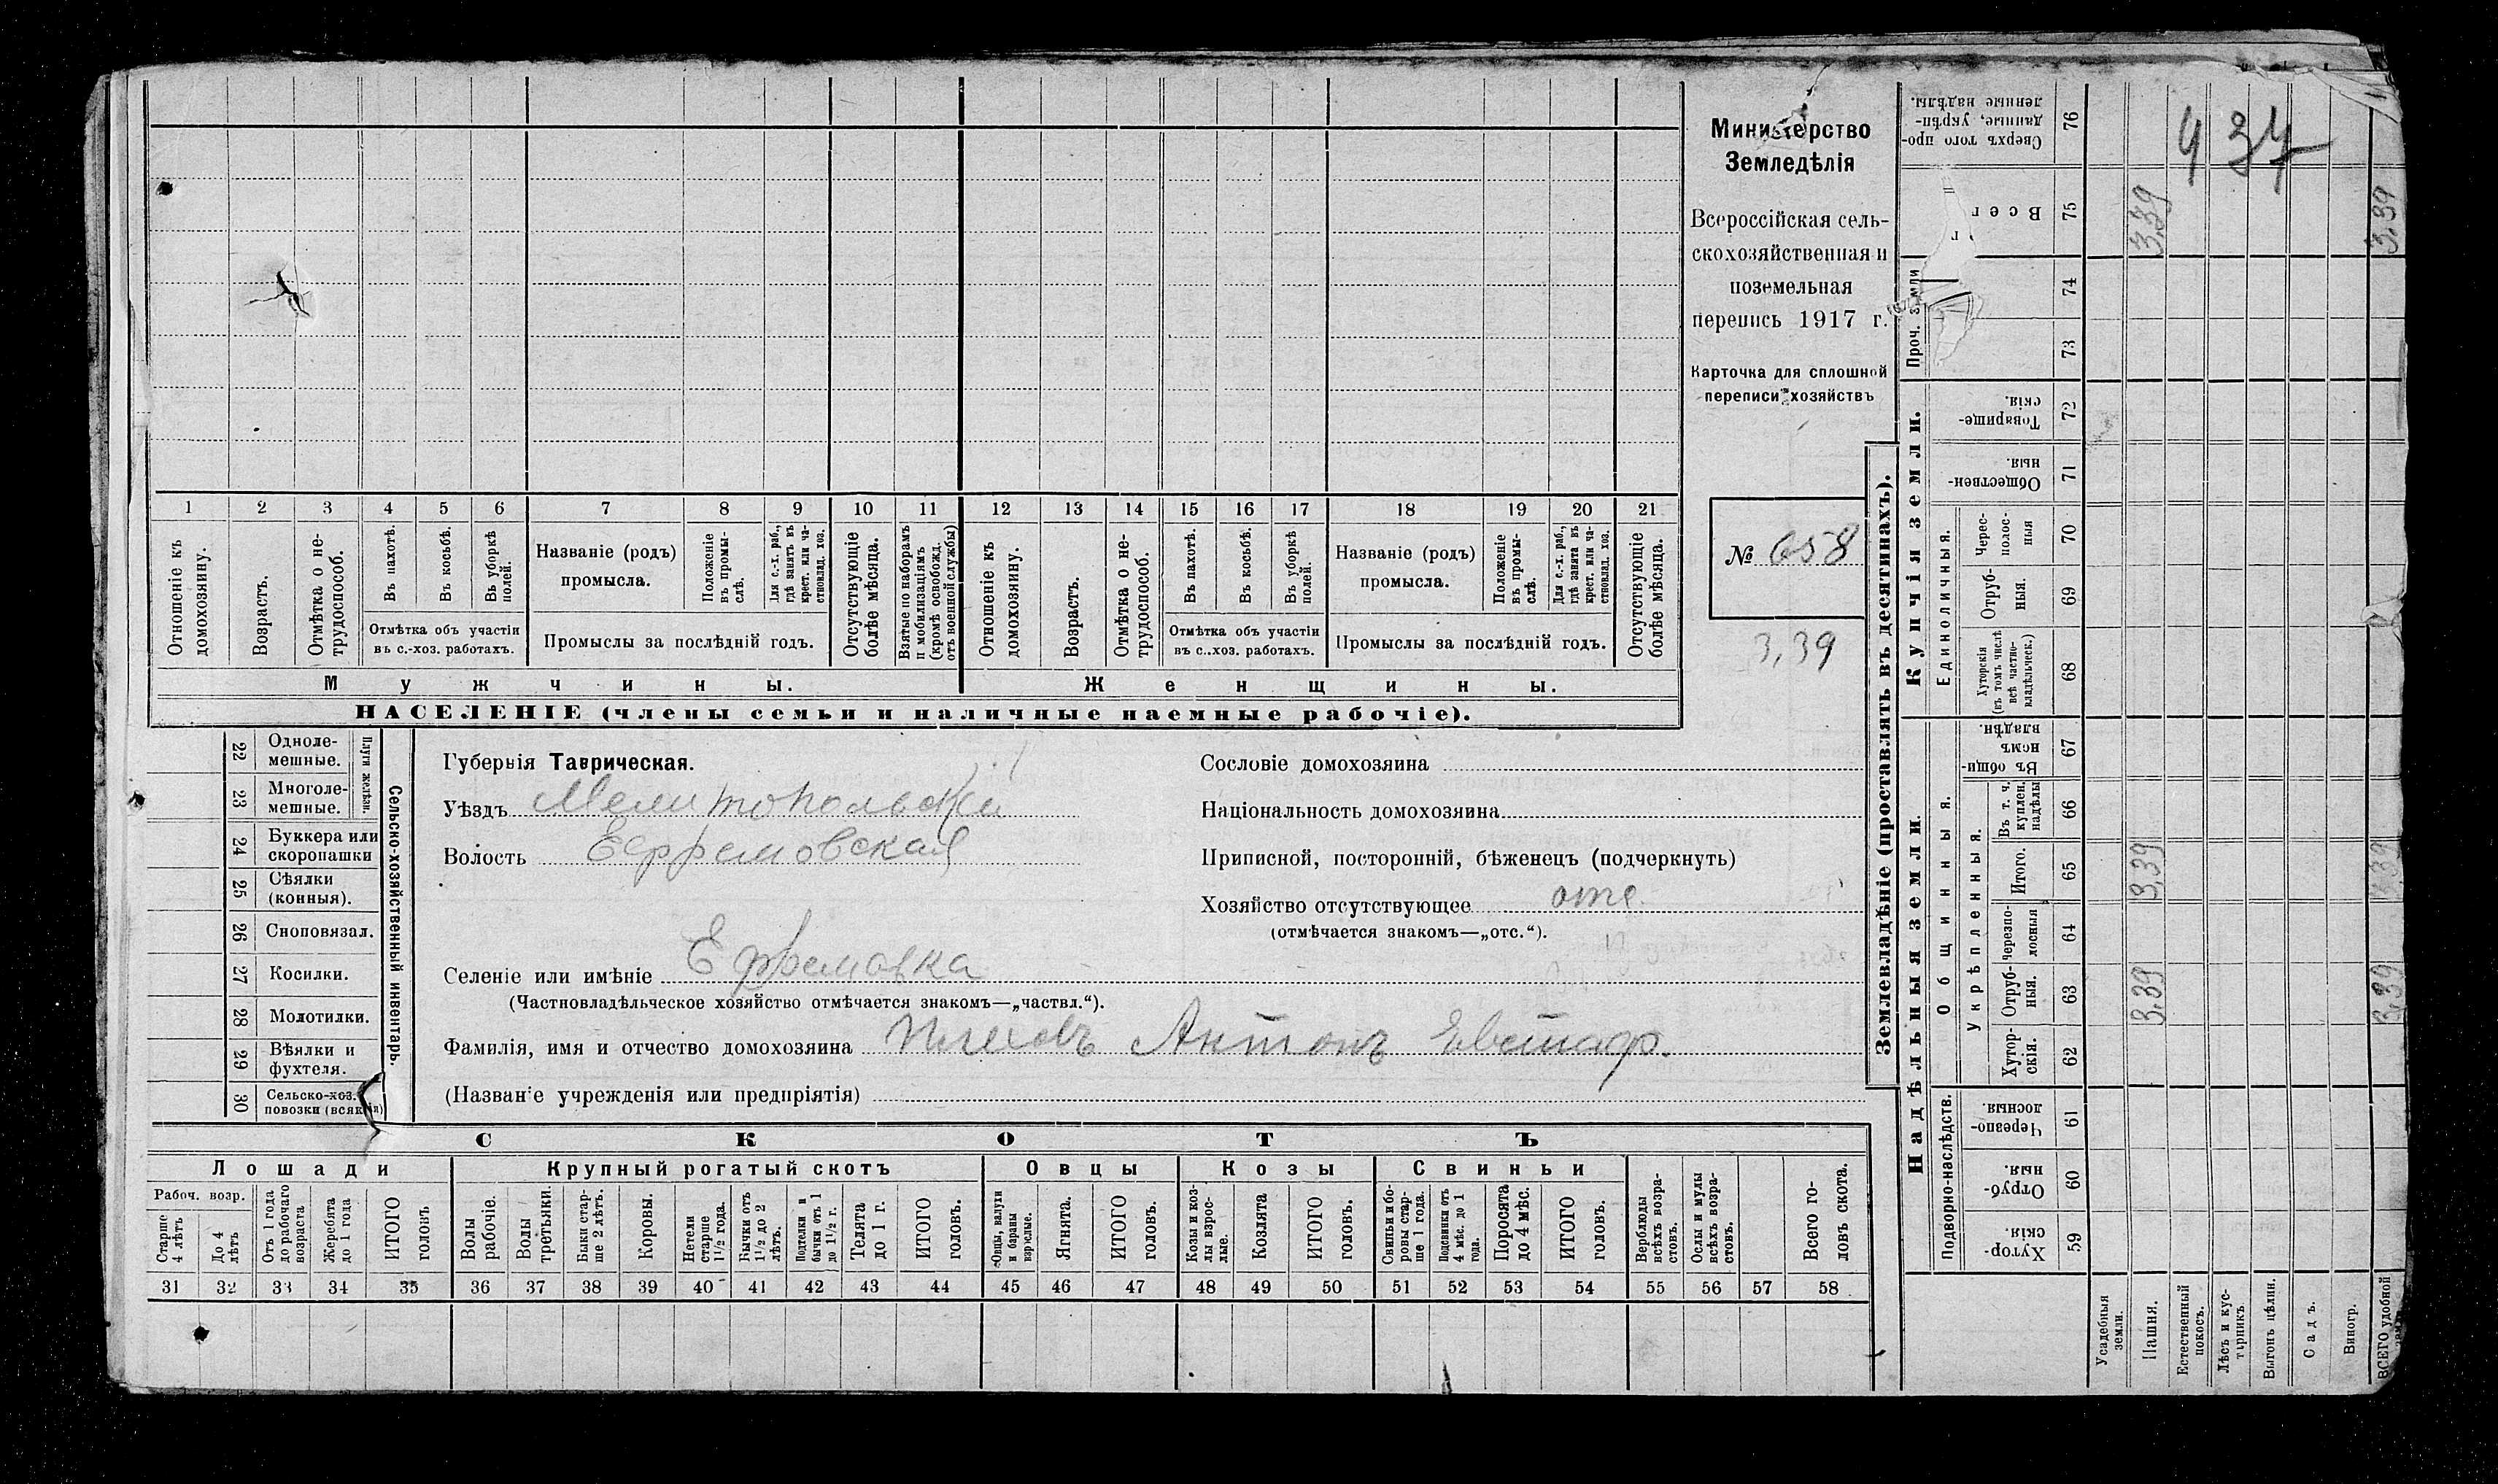 Министерство
Земледѣлія
Всероссійская сель-
скохозяйственная и
поземельная
перепись 1917 г.
Карточка для сплошной
переписи хозяйствъ
№ 658
3,39
1 2 3 4 5 6 7 8 9 10 11 12 13 14 15 16 17 18 19 20 21
Отношеніе къ домохозяину.
Возрастъ.
Отмѣтка о не-трудоспособ.
Въ пахотѣ.
Въ косьбѣ.
Въ уборкѣ полей.
Отмѣтка объ участіи
въ с.-хоз. работахъ.
Названіе (родъ)
промысла.
Положеніе въ промы-слѣ.
Для с.-х. раб., гдѣ занятъ въ крест. или ча-стновлад. хоз.
Промыслы за послѣдній годъ.
Отсутствующіе болѣе мѣсяца.
Взятые по наборамъ и мобилизаціямъ (кромѣ освобожд. отъ военной службы)
Отношеніе къ домохозяину.
Возрастъ.
Отмѣтка о не-трудоспособ.
Въ пахотѣ.
Въ косьбѣ.
Въ уборкѣ полей.
Отмѣтка объ участіи
въ с..хоз. работахъ.
Названіе (родъ)
промысла.
Положеніе въ промы-слѣ.
Для с.-х. раб., гдѣ занятъ въ крест. или ча-стновлад. хоз.
Промыслы за послѣдній годъ.
Отсутствующіе болѣе мѣсяца.
Мужчины.
Женщины.
НАСЕЛЕНІЕ (члены семьи и наличные наемные рабочіе).
22 Одноле-мешные.
23 Многоле-мешные.
Плуги желѣзн.
24 Буккера или скоропашки
25 Сѣялки (конныя).
26 Сноповязал.
27 Косилки.
28 Молотилки.
29 Вѣялки и фухтеля.
30 Сельско-хоз. повозки
Сельско-хозяйственный инвентарь.
Губернія Таврическая.
Уѣздъ Мелитопольскій
Волость Ефремовская
Селеніе или имѣніе Ефремовка
(Частновладѣльческое хозяйство отмѣчается знакомъ—„частвл.“).
Фамилія, имя и отчество домохозяина Антонъ Евстаф.
(Названіе учрежденія или предпріятія)
Сословіе домохозяина
Національность домохозяина
Приписной, посторонній, бѣженецъ (подчеркнуть)
Хозяйство отсутствующее отс.
(отмѣчается знакомъ—„отс.“).
СКОТЪ
Лошади
Крупный рогатый скотъ
Овцы
Козы
Свиньи
Рабоч. возр.
Старше 4 лѣтъ
До 4 лѣтъ
Отъ 1 года до рабочаго возраста
Жеребята до 1 года
ИТОГО головъ
Волы рабочіе.
Волы третьяки.
Быки стар-ше 2 лѣтъ.
Коровы.
Нетели старше 1 1/2 года.
Бычки отъ 1 1/2 до 2 лѣтъ.
Подтелки и бычки отъ 1 до 1 1/2 г.
Телята до 1 г.
ИТОГО головъ.
Овцы, валухи и бараны взрослые.
Ягнята.
ИТОГО головъ.
Козы и коз-лы взрос-лые.
Козлята
ИТОГО головъ.
Свиньи и бо-ровы стар-ше 1 года.
Подсвинки отъ 4 мѣс. до 1 года.
Поросята до 4 мѣс.
ИТОГО головъ.
Верблюды всѣхъ возра-стовъ.
Ослы и мулы всѣхъ возра-стовъ.
Всего го-ловъ скота.
31 32 33 34 35 36 37 38 39 40 41 42 43 44 45 46 47 48 49 50 51 52 53 54 55 56 57 58
Землевладѣніе (проставлять въ десятинахъ).
Надѣльныя земли.
Купчія земли.
Проч. земли
Подворно-наслѣдств.
Общинныя.
Укрѣпленныя.
Единоличныя.
Сверхъ того про-данные, укрѣп-ленные надѣлы. 76
437
Всег 75 3,39 3,39
74
73
Товарище-скія. 72
Обществен-ныя. 71
Черес-полос-ныя 70
Отруб-ныя. 69
Хуторскія (въ томъ числѣ всѣ частно-владѣльческ.) 68
Въ общи-номъ владѣн. 67
Въ т. ч. куплен. надѣлы 66
Итого. 65 3,39 3,39
Черезпо-лосныя 64
Отруб-ныя. 63 3,39 3,39
Хутор-скія. 62
Черезпо-лосныя. 61
Отруб-ныя. 60
Хутор-скія. 59
Усадебныя земли.
Пашня.
Естественный покосъ.
Лѣсъ и кус-тарникъ.
Выгонъ цѣлин.
Садъ.
Виногр.
ВСЕГО удобной